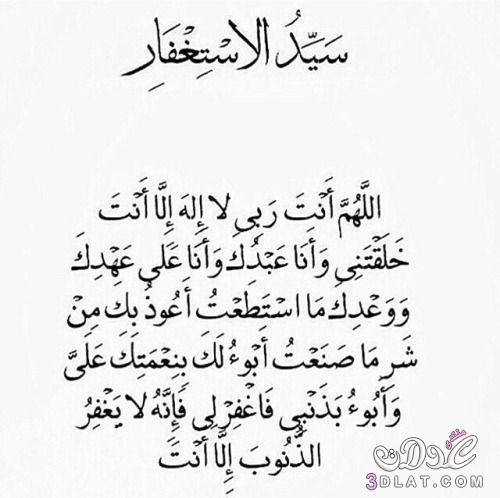 سَيِّدُ الاسْتِغْفَارِ
اللَّهُمَّ أَنْتَ رَبِي لا إِلهَ إِلَّا أَنْتَ
خَلَقْتَنِي وَأَنَا عَبْدُكَ وَأَنَا عَلى عَهْدِكَ
وَوَعْدِكَ مَا اسْتَطَعْتُ أَعُوذُ بِكَ مِنْ
شَرِ مَا صَنَعْتُ أَبُوءُ لَكَ بِنِعْمَتِكَ عَلَيَّ
وَأَبُوءُ بَذَنْبِي فَاغْفِرْ لِي فَإِنَّهُ لا يَغْفِرُ
الذُّنُوبَ إِلَّا أَنْتَ
منتدى
عدلات
3DLAT.COM